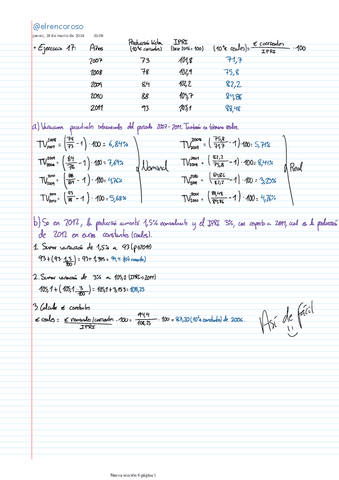 @elrencoroso
jueves, 21 de marzo de 2024 20:08
• Ejercicio 17: Años Producción láctea (10⁶€ corrientes) IPRI (base 2006 = 100) € reales = € corrientes / IPRI · 100
2007 73 101,8 71,7
2008 78 102,9 75,8
2009 84 102,2 82,2
2010 88 103,7 84,86
2011 93 105,1 88,48
a) Variaciones porcentuales interanuales del periodo 2007-2011. También en términos reales.
TV 2008/2007 = (78/73 - 1) · 100 = 6,84% TV 2008/2007 = (75,8/71,7 - 1) · 100 = 5,71%
TV 2009/2008 = (84/78 - 1) · 100 = 7,69% TV 2009/2008 = (82,2/75,8 - 1) · 100 = 8,44%
Nominal Real
TV 2010/2009 = (88/84 - 1) · 100 = 4,76% TV 2010/2009 = (84,86/82,2 - 1) · 100 = 3,23%
TV 2011/2010 = (93/88 - 1) · 100 = 5,68% TV 2011/2010 = (88,48/84,86 - 1) · 100 = 4,26%
b) Si en 2012, la producción aumentó 1,5% nominalmente y el IPRI 3%, con respecto a 2011, cuál es la producción
de 2012 en euros constantes (reales).
1. Sumar variación de 1,5% a 93
93 + (93 · 1,5/100) = 93 + 1,395 = 94,4
2. Sumar variación de 3% a 105,1 (IPRI 2011)
105,1 + (105,1 · 3/100) = 105,1 + 3,153 = 108,25
3. Calcular € constantes
€ reales = € nominales/corrientes / IPRI · 100 = 94,4 / 108,25 · 100 = 87,20 (10⁶€ constantes) de 2006.
Así de fácil
Nueva sección 6 página 1